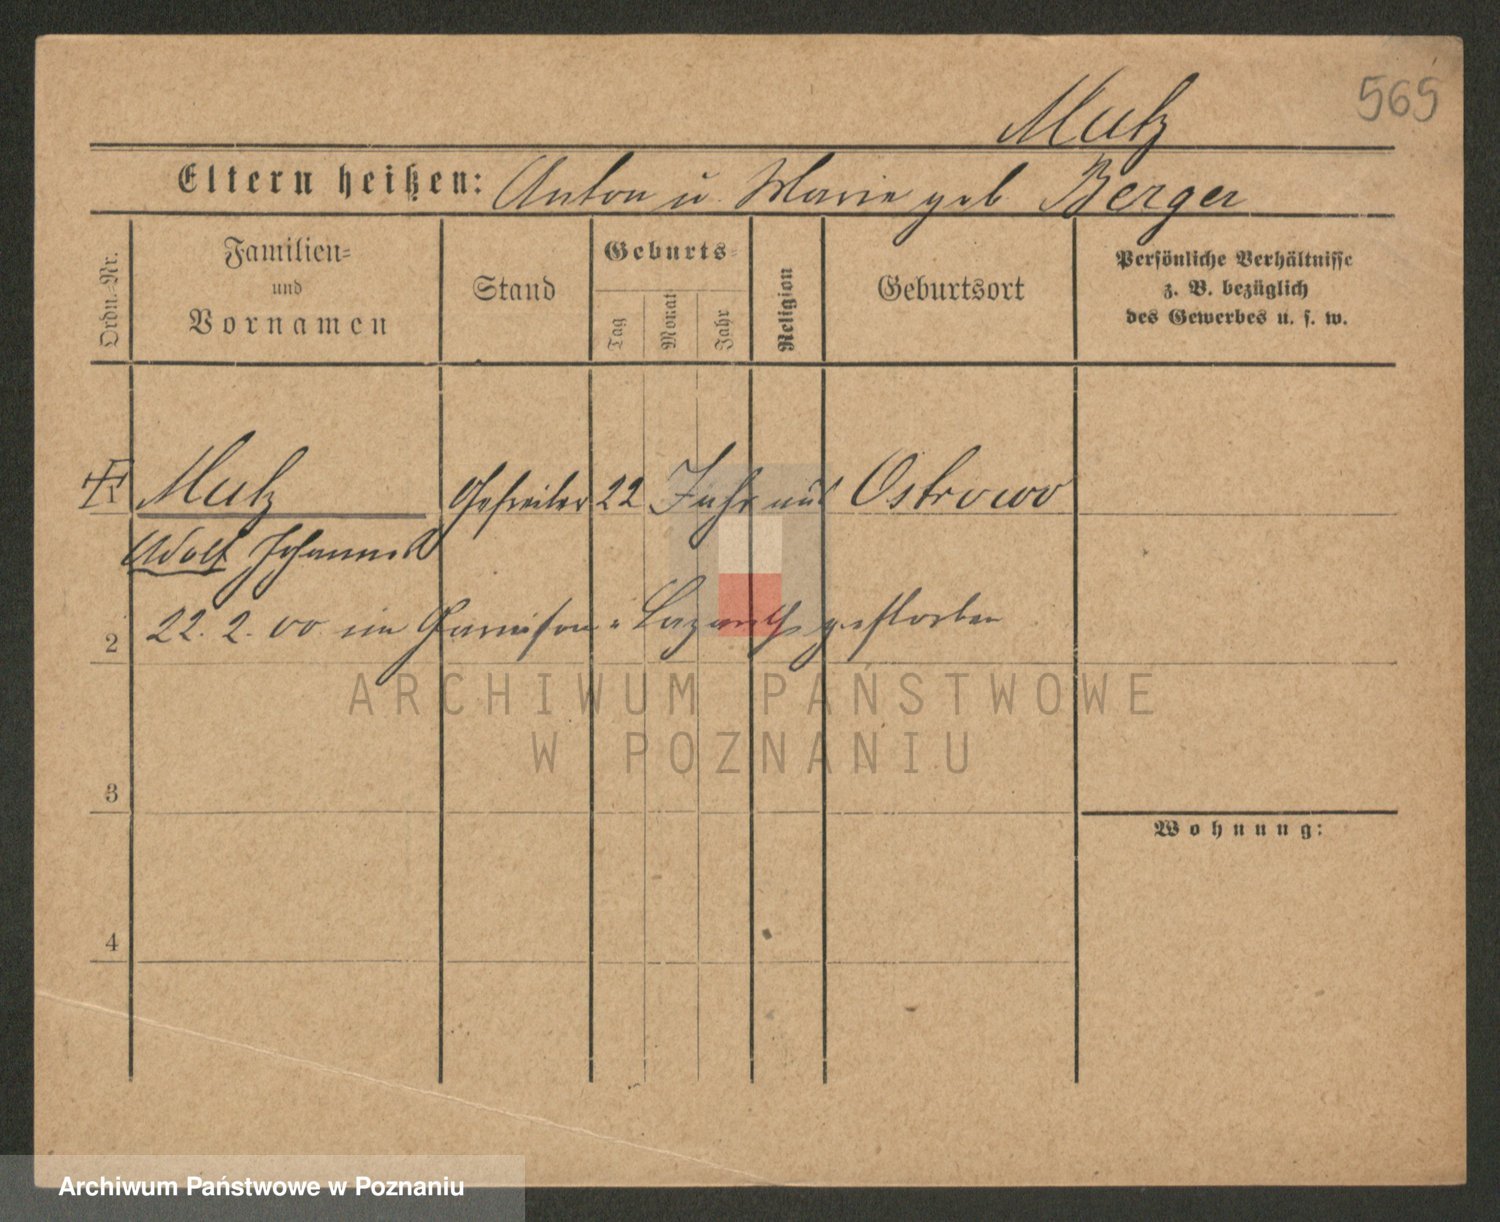 565
Mutz
Eltern heißen: Anton u. Marie geb. Berger
Ordn.-Nr.
Familien- und Vornamen
Stand
Geburts-
Tag
Monat
Jahr
Religion
Geburtsort
Persönliche Verhältnisse
z. B. bezüglich
des Gewerbes u. s. w.
1 Mutz Gefreiter 22 Jahr aus Ostrowo
Adolf Johannes
2 22. 2. 00 im Garnison-Lazareth gestorben
3
Wohnung:
4
ARCHIWUM PAŃSTWOWE
W POZNANIU
Archiwum Państwowe w Poznaniu